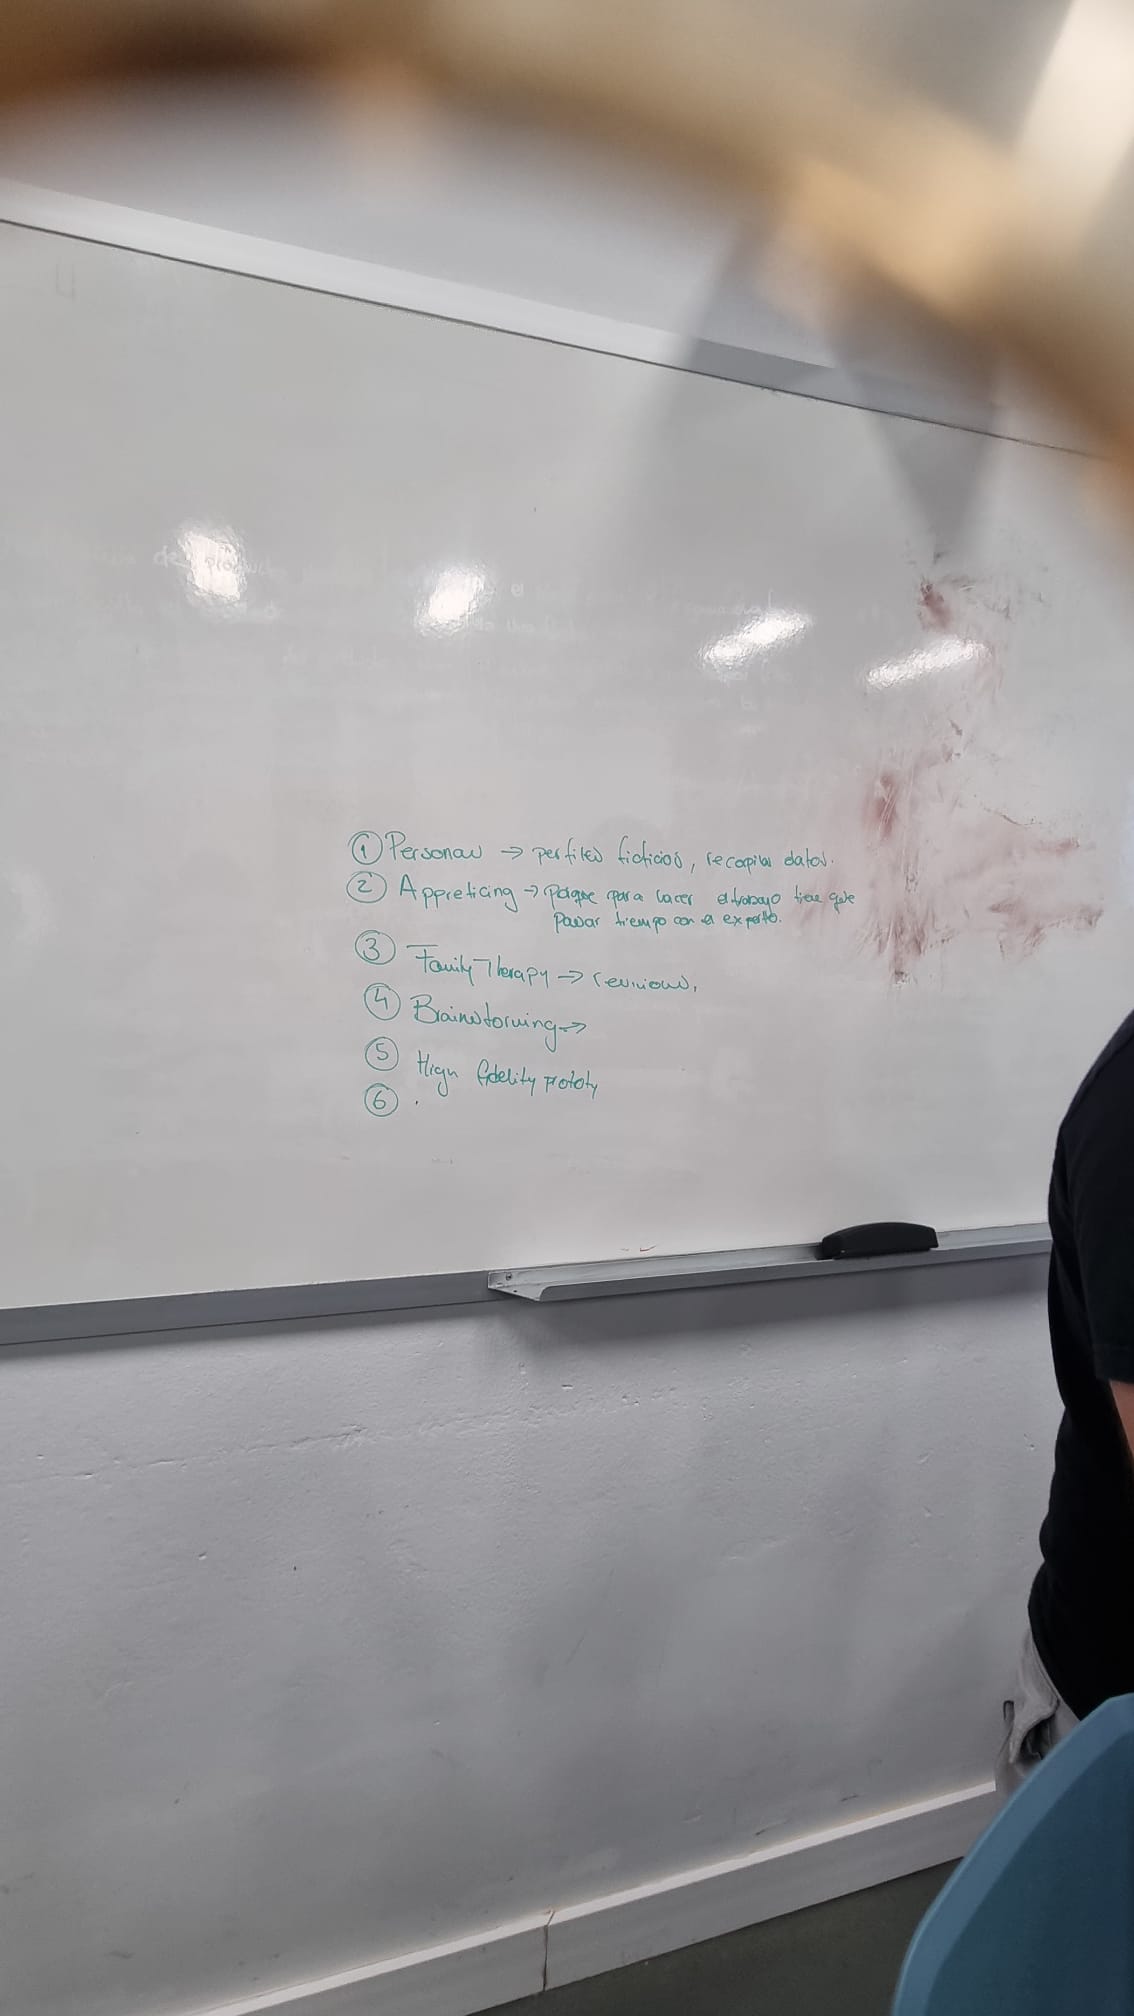 ① Personas → perfiles ficticios, recopilar datos.
② Appreticing → porque para hacer el trabajo tiene que
pasar tiempo con el experto.
③ Family Therapy → reuniones.
④ Brainstorming →
⑤ High fidelity prototy
⑥ .